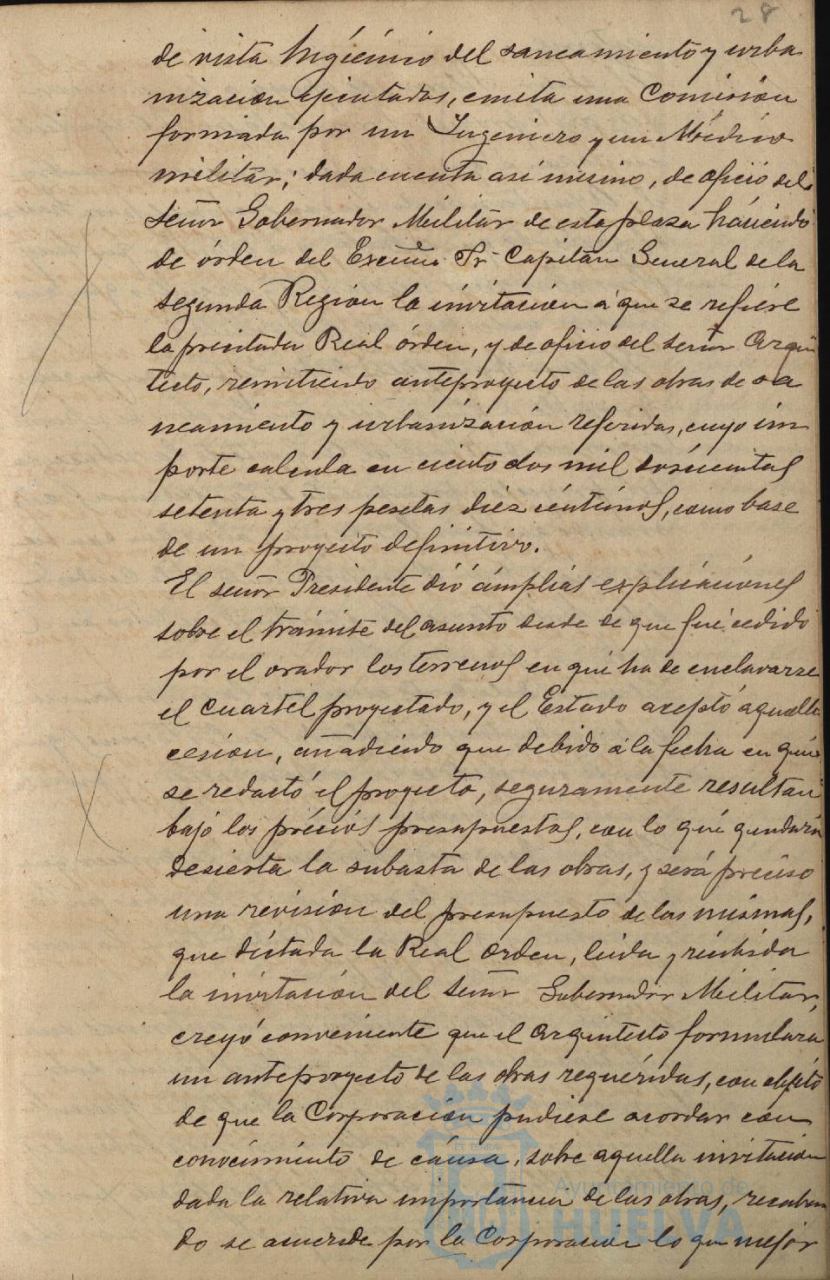 28
de vista higiénico del saneamiento y urba
nización ejecutadas, emita una Comisión
formada por un Ingeniero y un Médico
militar; dada cuenta asi mismo, de oficio del
Señor Gobernador Militar de esta plaza haciendo
de órden del Excmo. Sr. Capitán General de la
segunda Región la invitación á que se refiere
la precitada Real órden, y de oficio del señor Arqui
tecto, remitiendo anteproyecto de las obras de sa
neamiento y urbanización referidas, cuyo im
porte calcula en ciento dos mil doscientas
setenta y tres pesetas diez céntimos, como base
de un proyecto definitivo.
El señor Presidente dió ámplias explicaciones
sobre el trámite del asunto desde que fué cedido
por el orador los terrenos en que ha de enclavarse
el cuartel proyectado, y el Estado aceptó aquella
cesión, añadiendo que debido á la fecha en que
se redactó el proyecto, seguramente resultan
bajo los précios presupuestos, con lo que quedaría
desierta la subasta de las obras, y será preciso
una revisión del presupuesto de las mismas,
que dictada la Real orden, leida y recibida
la invitación del Señor Gobernador Militar,
creyó conveniente que el Arquitecto formulara
un anteproyecto de las obras requeridas, con objeto
de que la Corporación pudiese acordar con
conocimiento de causa, sobre aquella invitación
dada la relativa importancia de las obras, recaban
do se acuerde por la Corporación lo que mejor
Ayuntamiento de
HUELVA